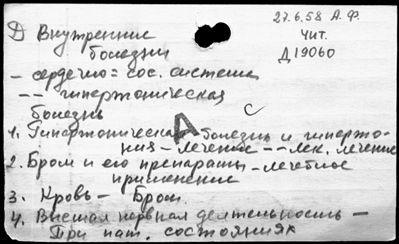 27.6.58 А.Ф.
Чит.
Д19060
Д Внутренние
болезни
– сердечно=сос. система
–– гипертоническая
болезнь
А
с
1. Гипертоническая болезнь и гиперто-
ния – лечение –– лек. лечение
2. Бром и его препараты – лечебное
применение
3. Кровь – Бром.
4. Высшая нервная деятельность –
При пат. состояниях